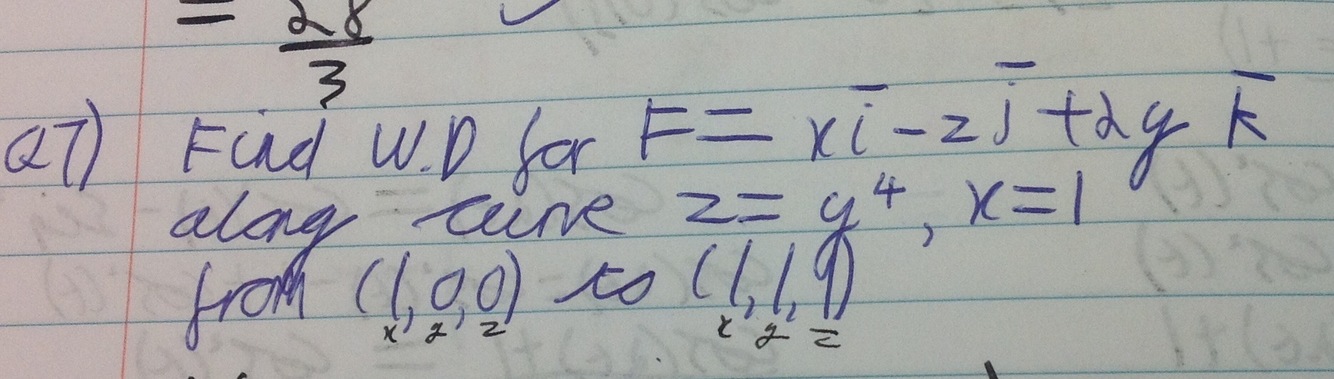 = 28/3 ✓
Q7) Find W.D for F = xi̅ - zj̅ + 2y k̅
along curve z = y⁴, x = 1
from (1,0,0) to (1,1,1)
x y z x y z